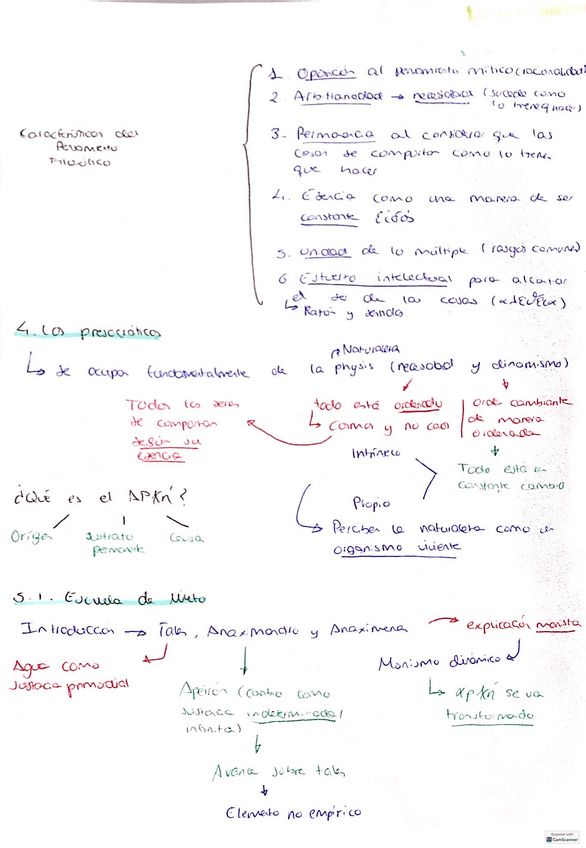 1. Oposición al pensamiento mítico (racionalidad)
2. Arbitrariedad → necesidad (sucede como
lo tiene que hacer)
Características del
Pensamiento
Filosófico
3. Permanencia al considerar que las
cosas se comportan como lo tiene
que hacer
4. Esencia como una manera de ser
constante Eidós
5. Unidad de lo múltiple (rasgos comunes)
6 Esfuerzo intelectual para alcanzar
el ser de las cosas
↳ Razón y sentidos
4. Los presocráticos
Naturaleza
↳ Se ocupan fundamentalmente de la physis (necesidad y dinamismo)
Todos los seres
se comportan
según su
esencia
todo está ordenado
↳ Cosmos y no caos
orden cambiante
de manera
ordenada
Intrínseco
Todo está en
constante cambio
¿Qué es el APXń?
Propio
Origen
Sustrato
permanente
Causa
↳ Perciben la naturaleza como un
organismo viviente
5.1. Escuela de Mileto
Introducción → Tales, Anaximandro y Anaxímenes → explicación monista
Agua como
sustancia primordial
Monismo dinámico
Apeirón (como
sustancia indeterminada/
infinita)
↳ APXń se va
transformando
Avance sobre Tales
Elemento no empírico
Scanned with
CamScanner